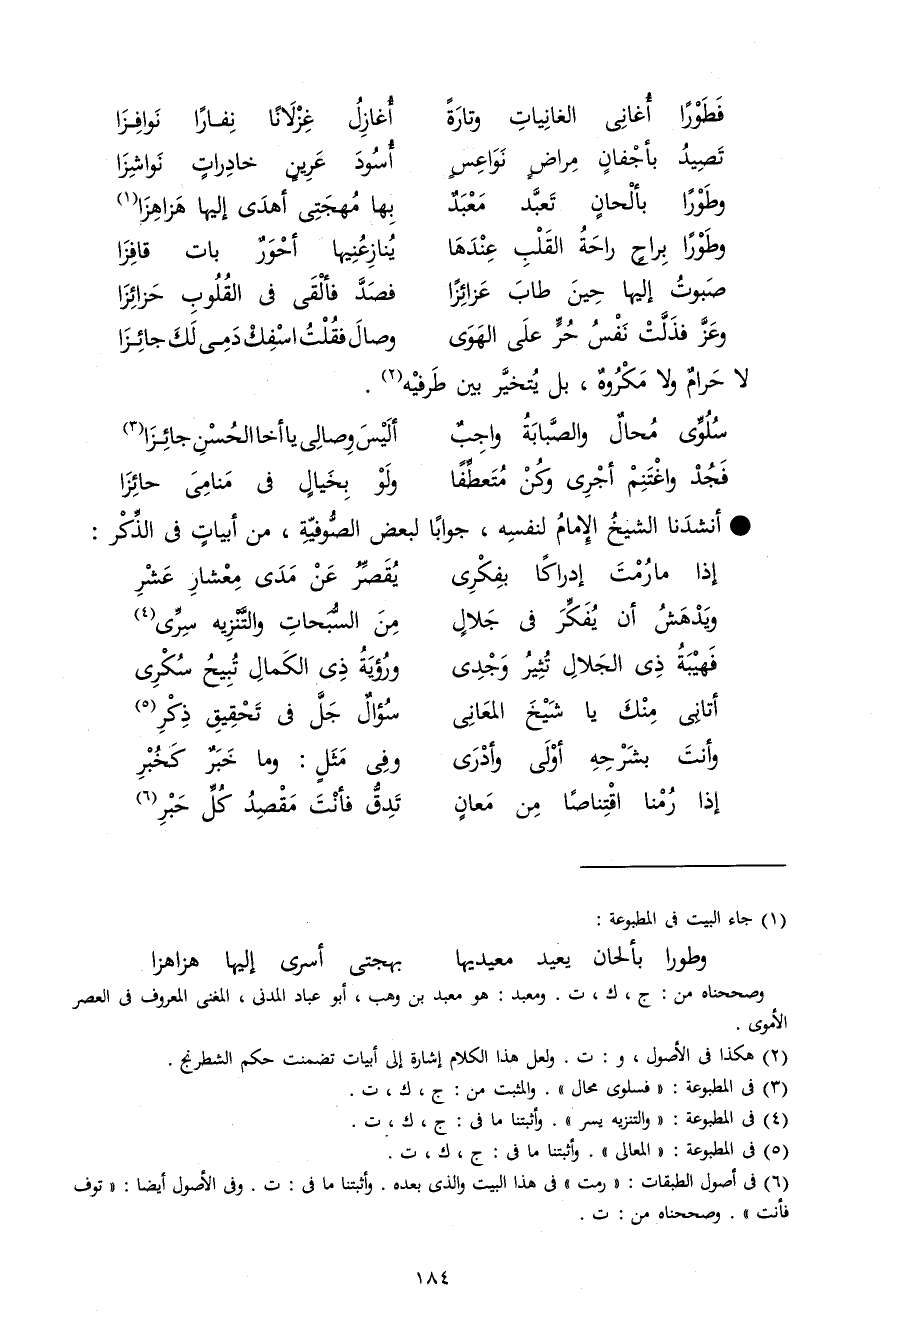 فَطَوْرًا أُغانِى الغانِياتِ وتارَةً أُغازِلُ غِزْلَانًا نِفـارًا نَوافِـزَا
تَصِيدُ بأجْفانٍ مِراضٍ نَوَاعِسٍ أُسُودَ عَرِينٍ خادِراتٍ نَواشِزَا
وطَوْرًا بألْحانٍ تَعبَّد مَعْبَدٌ بها مُهجَتِى أهدَى إليها هَزاهِزَا(١)
وطَوْرًا بِراحٍ راحَةُ القَلْبِ عِنْدَهَا يُنازِعُنِيها أحْوَرٌ بات قافِزَا
صَبوتُ إليها حِينَ طابَ عَزائِزًا فصَدَّ فألْقَى فى القُلُوبِ حَزائِزَا
وعَزَّ فذَلَّتْ نَفْسُ حُرٍّ علَى الهَوَى وصالَ فقُلْتُ اسْفِكْ دَمِـى لَكَ جائِـزَا
لا حَرامٌ ولا مَكْرُوهٌ ، بل يُتخيَّر بين طَرفيْه(٢) .
سُلُوِّى مُحالٌ والصَّبابَةُ واجِبٌ أليْسَ وِصالِى يا أخا الحُسْنِ جائِـزَا(٣)
فَجُدْ واغْتَنِمْ أجْرِى وكُنْ مُتَعطِّفًا ولَوْ بِخَيالٍ فى مَنامِىَ حائِزَا
● أنشدَنا الشيخُ الإمامُ لنفسِه ، جوابًا لبعض الصُّوفيّةِ ، من أبياتٍ فى الذِّكْرِ :
إذا مارُمْتَ إدراكًا بفِكْرِى يُقَصِّرُ عَنْ مَدَى مِعْشارِ عَشْرِ
ويَدْهَشُ أن يُفَكِّرَ فى جَلالٍ مِنَ السُّبُحاتِ والتَّنْزِيه سِرِّى(٤)
فَهَيْبَةُ ذِى الجَلالِ تُثِيرُ وَجْدِى ورُؤيَةُ ذِى الكَمالِ تُبِيحُ سُكْرِى
أتانِى مِنْكَ يا شَيْخَ المَعَانِى سُؤالٌ جَلَّ فى تَحْقِيقِ ذِكْرِ(٥)
وأنتَ بشَرْحِهِ أوْلَى وأدْرَى وفِى مَثَلٍ : وما خَبَرٌ كَخُبْرِ
إذا رُمْنا اقْتِناصًا مِن مَعانٍ تَدِقُّ فأنْتَ مَقْصِدُ كُلِّ حَبْرِ(٦)
(١) جاء البيت فى المطبوعة :
وطورا بألحان يعيد معيديها بهجتى أسرى إليها هزاهزا
وصححناه من : ج ، ك ، ت . ومعبد : هو معبد بن وهب ، أبو عباد المدنى ، المغنى المعروف فى العصر
الأموى .
(٢) هكذا فى الأصول ، و : ت . ولعل هذا الكلام إشارة إلى أبيات تضمنت حكم الشطرنج .
(٣) فى المطبوعة : « فسلوى محال » . والمثبت من : ج ، ك ، ت .
(٤) فى المطبوعة : « والتنزيه يسر » . وأثبتنا ما فى : ج ، ك ، ت .
(٥) فى المطبوعة : « المعالى » . وأثبتنا ما فى : ج ، ك ، ت .
(٦) فى أصول الطبقات : « رمت » فى هذا البيت والذى بعده . وأثبتنا ما فى : ت . وفى الأصول أيضا : « توف
فأنت » . وصححناه من : ت .
١٨٤